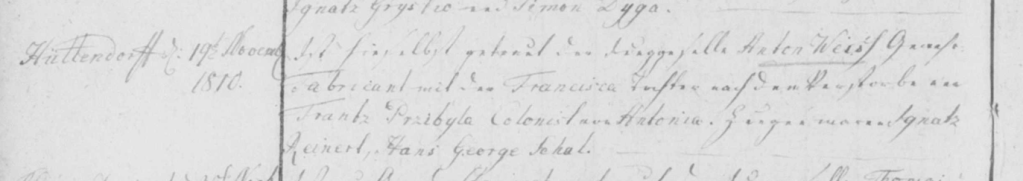 Ignatz Grystko und Simon Zyga.
Hüttendorff d. 19t Novemb
1810.
Ist hieselbst getraut der Junggeselle Anton Weiß Gewehr
Fabricant mit der Francisca Tochter nach dem Verstorbenen
Frantz Przibyla Colonist von Antonia. Zeugen waren Ignatz
Reinert, Hans George Schal.